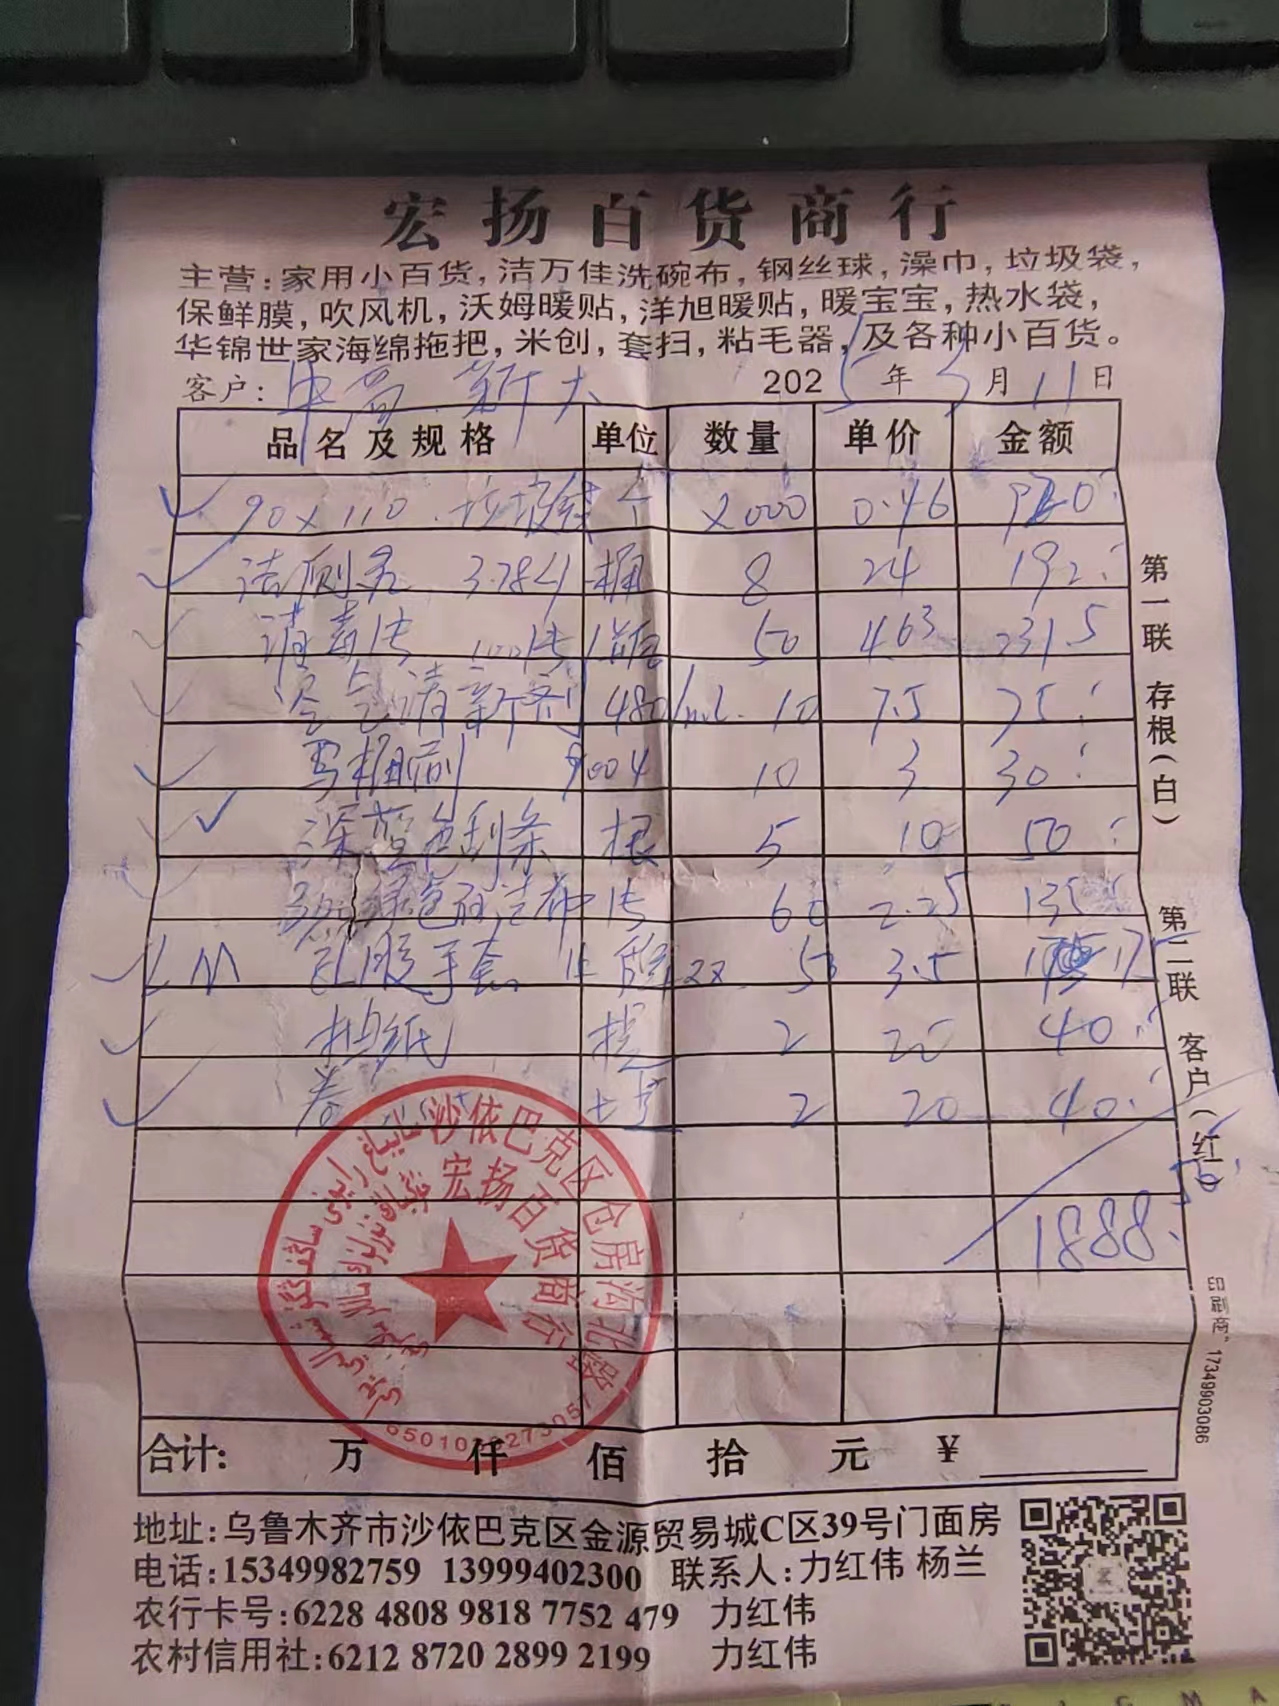 宏扬百货商行
主营:家用小百货,洁万佳洗碗布,钢丝球,澡巾,垃圾袋,
保鲜膜,吹风机,沃姆暖贴,洋旭暖贴,暖宝宝,热水袋,
华锦世家海绵拖把,米创,套扫,粘毛器,及各种小百货。
客户: 中商 新大 2025年3月11日
品名及规格 单位 数量 单价 金额
90×110 垃圾袋 个 2000 0.46 920
洁厕灵 3.78L 桶 8 24 192
消毒 50 4.63 231.5
空气清新剂 480ml 10 7.5 75
马桶刷 9004 10 3 30
深蓝色刮条 根 5 10 50
绿色百洁布 块 60 2.25 135
LM 乳胶手套 50 3.5 175
抽纸 提 2 20 40
卷 2 20 40
1888.50
第一联 存根(白) 第二联 客户(红)
印刷商,17349903086
沙依巴克区仓房沟北路
宏扬百货商行
合计: 万 仟 佰 拾 元 ¥
地址:乌鲁木齐市沙依巴克区金源贸易城C区39号门面房
电话:15349982759 13999402300 联系人:力红伟 杨兰
农行卡号:6228 4808 9818 7752 479 力红伟
农村信用社:6212 8720 2899 2199 力红伟